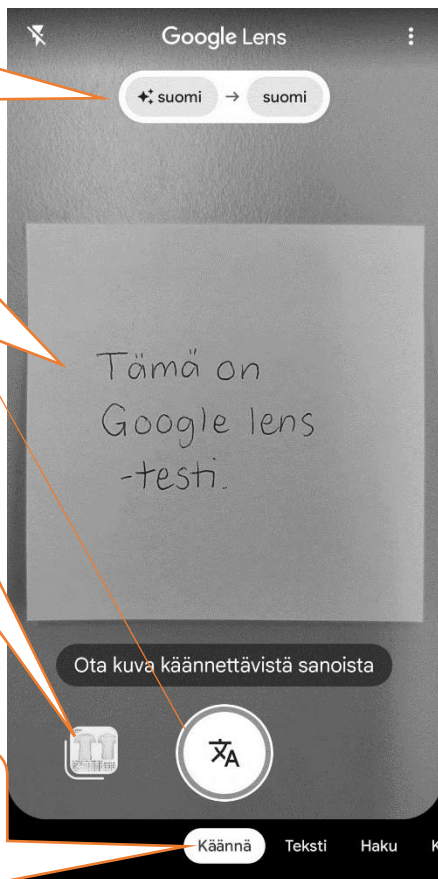 Google Lens
suomi → suomi
Tämä on
Google lens
-testi.
Ota kuva käännettävistä sanoista
Käännä Teksti Haku K